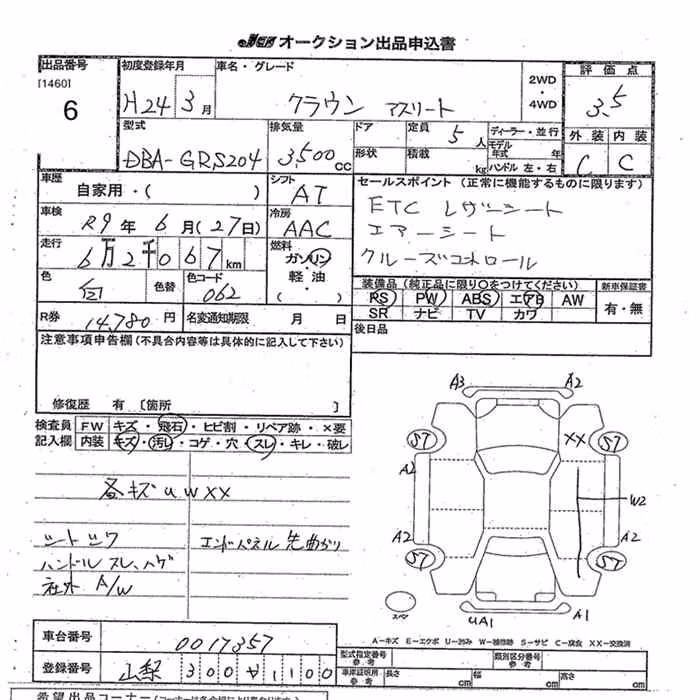 JCA オークション出品申込書
出品番号
[1460]
6
初度登録年月
H24 3月
車名・グレード
クラウン アスリート
2WD
・
4WD
評価点
3.5
型式
DBA-GRS204
排気量
3,500 CC
ドア
形状
定員 5人
積載 kg
ディーラー・並行
モデル年式 年
ハンドル 左・右
外装 内装
C C
車歴
自家用・( )
シフト
AT
車検
R9年 6月(27日)
冷房
AAC
走行
6万2千067km
燃料
ガソリン
軽油
( ・ )
セールスポイント (正常に機能するものに限ります)
ETC レザーシート
エアーシート
クルーズコントロール
色
白
色替
色コード
062
装備品(純正品に限り○をつけてください)
PS PW ABS エアB AW
SR ナビ TV カワ
新車保証書
有・無
R券 14,780円 名変通知期限 月 日
後日品
注意事項申告欄(不具合内容等は具体的に記入して下さい)
修復歴 有 〔箇所 〕
検査員 FW キズ・飛石・ヒビ割・リペア跡・×要
記入欄 内装 キズ・汚れ・コゲ・穴・スレ・キレ・破レ
各キズ U W XX
シートシワ エンドパネル先曲がり
ハンドルスレ、ハゲ
社外 A/W
A3 A2
ST XX ST
A2
W2
A2 A2
ST ST
スペア
UA1 A1
A-キズ E-エクボ U-凹み W-補修跡 S-サビ C-腐食 XX-交換済
車台番号 0017357
登録番号 山梨 300 1100
型式指定番号 参考
類別区分番号 参考
車庫証明用 参考 長さ cm 幅 cm 高さ cm
希望出品コーナー